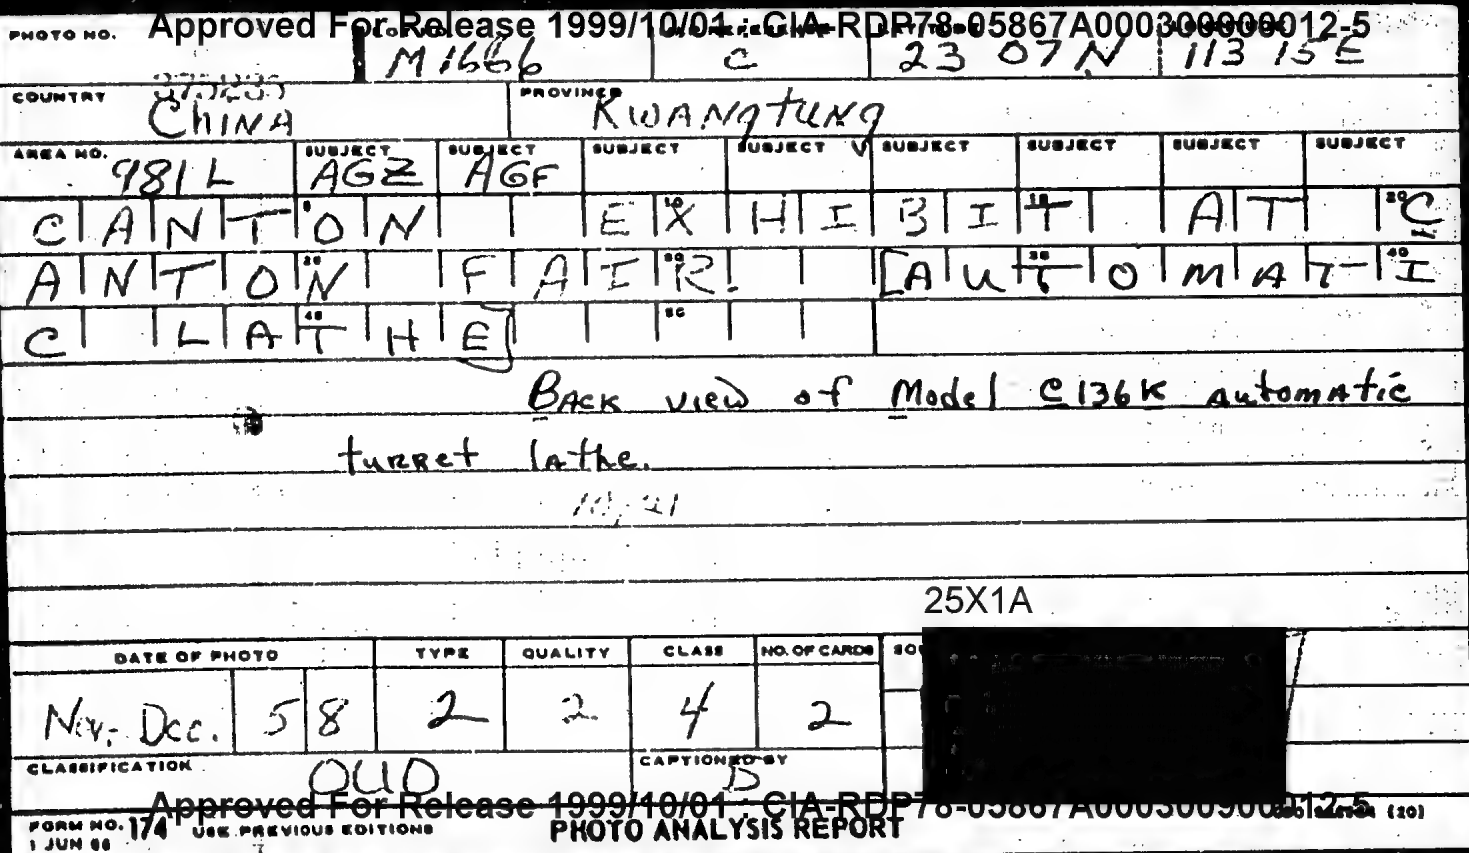 Approved For Release 1999/10/01 : CIA-RDP78-05867A000300000012-5
PHOTO NO. M1666 C 23 07 N 113 15 E
COUNTRY China PROVINCE Kwangtung
AREA NO. 981L SUBJECT AGZ SUBJECT AGF SUBJECT SUBJECT SUBJECT SUBJECT SUBJECT SUBJECT
CANTON EXHIBIT AT C
ANTON FAIR. [AUTOMATI
C LATHE]
Back view of Model C136K automatic
turret lathe.
25X1A
DATE OF PHOTO TYPE QUALITY CLASS NO. OF CARDS
Nov.- Dec. 58 2 2 4 2
CLASSIFICATION OUO CAPTIONED BY D
Approved For Release 1999/10/01 : CIA-RDP78-05867A000300000012-5
FORM NO. 174 USE PREVIOUS EDITIONS PHOTO ANALYSIS REPORT (20)
1 JUN 56